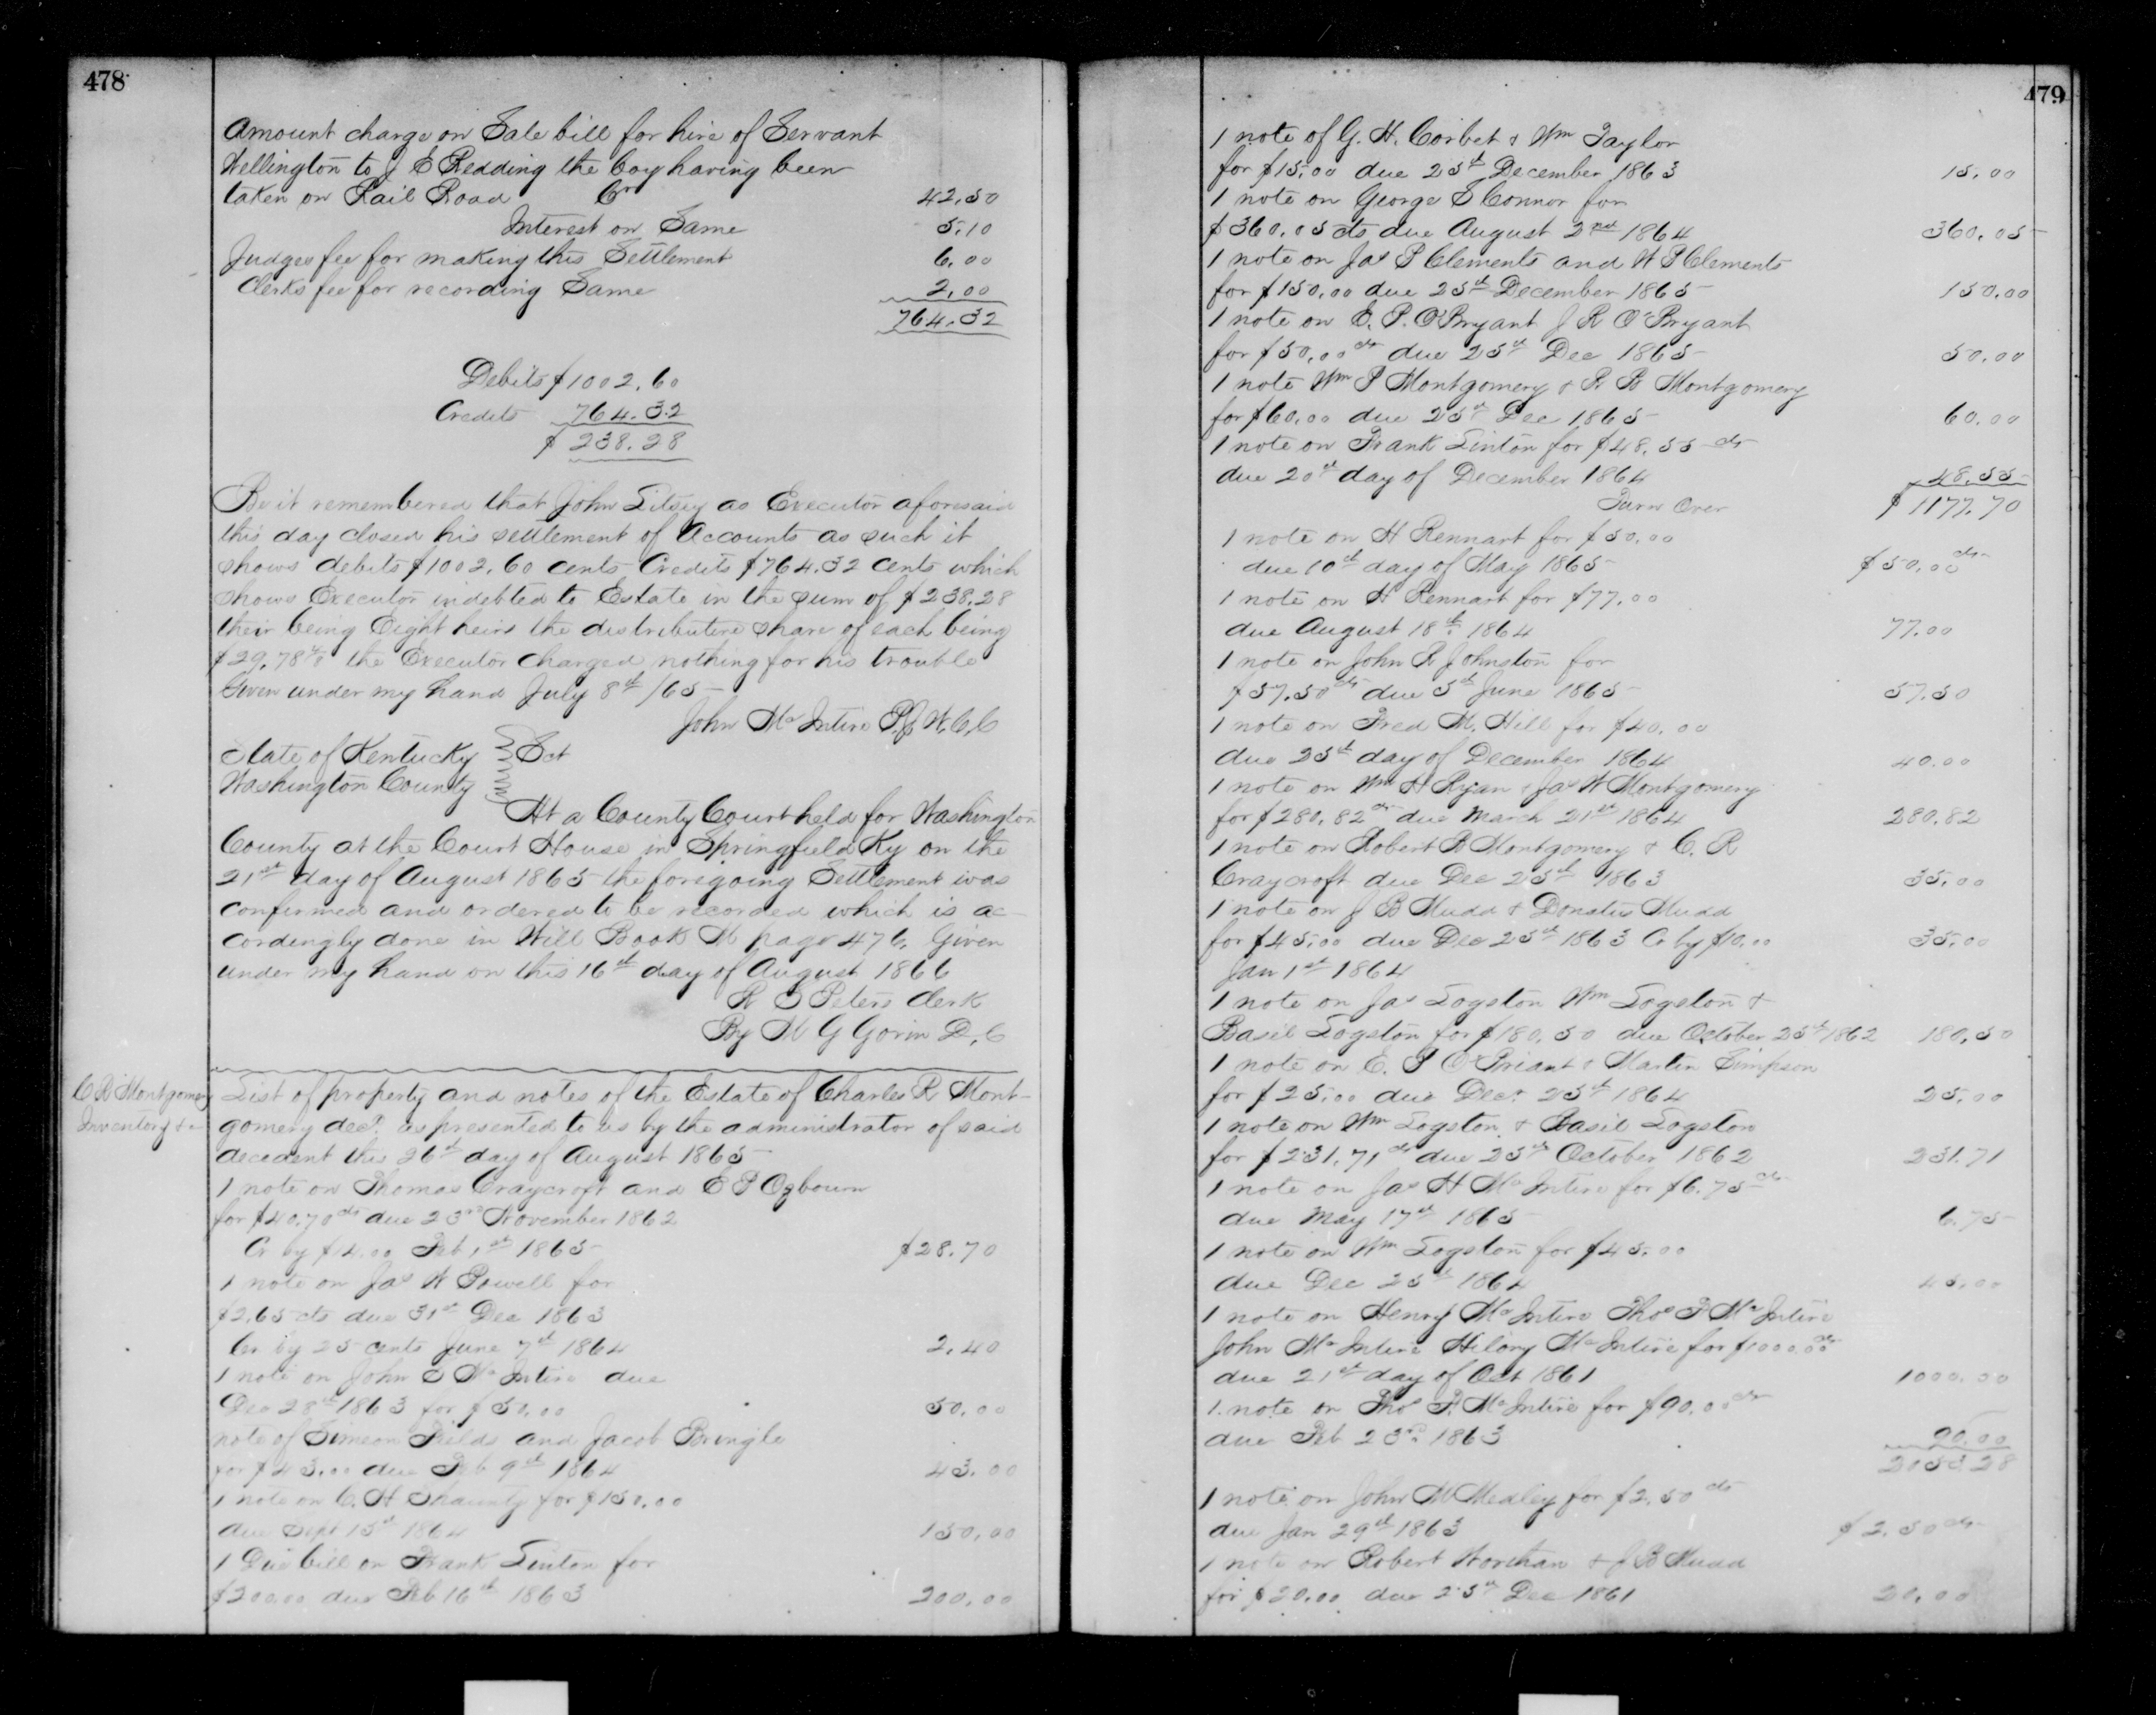 478
Amount charge on Sale bill for hire of Servant
Wellington to J E Redding the boy having been
taken on Rail Road Cr 42.50
Interest on Same 5.10
Judges fee for making this Settlement 6.00
Clerks fee for recording Same 2.00
764.32
Debits $1002.60
Credits 764.32
$ 238.28
Be it remembered that John Litsey as Executor aforesaid
this day closed his settlement of Accounts as such it
shows debits $1002.60 cents Credits $764.32 cents which
shows Executor indebted to Estate in the sum of $238.28
their being Eight heirs the distributive share of each being
$29.78 4/8 the Executor charged nothing for his trouble
Given under my hand July 8th /65
John McIntire P.J.W.C.C
State of Kentucky } Sct
Washington County }
At a County Court held for Washington
County at the Court House in Springfield Ky on the
21st day of August 1865 the foregoing Settlement was
confirmed and ordered to be recorded which is ac-
cordingly done in Will Book M page 476. Given
under my hand on this 16th day of August 1866
R S Peters Clerk
By M G Gorin D.C
C R Montgomery
Inventory &c
List of property and notes of the Estate of Charles R Mont-
gomery decd. as presented to us by the administrator of said
decedent the 26th day of August 1865
1 note on Thomas Craycroft and E P Ogbourn
for $40.70cts due 23rd November 1862
Cr by $14.00 Feb 1st 1865 $28.70
1 note on Jas W Powell for
$2.65 cts due 31st Dec 1863
Cr by 25 cents June 7th 1864 2.40
1 note on John S McIntire due
Dec 28th 1863 for $50.00 50.00
note of Simeon Fields and Jacob Pringle
for $43.00 due Feb 9th 1864 43.00
1 note on C. H Shaunty for $150.00
due Sept 15th 1864 150.00
1 Due bill on Frank Linton for
$200.00 due Feb 16th 1863 200.00
479
1 note of G. H. Corbet & Wm Taylor
for $15.00 due 25th December 1863 15.00
1 note on George S Connor for
$360.05 cts due August 2nd 1864 360.05
1 note on Jas P Clements and W P Clements
for $150.00 due 25th December 1865 150.00
1 note on E. P. O'Bryant J R O'Bryant
for $50.00cts due 25th Dec 1865 50.00
1 note Wm P Montgomery & R. B Montgomery
for $60.00 due 25th Dec 1865 60.00
1 note on Frank Linton for $48.55 cts
due 20th day of December 1864 48.55
Turn Over $1177.70
1 note on H Rennart for $50.00
due 10th day of May 1865 $50.00cts
1 note on H Rennart for $77.00
due August 18th. 1864 77.00
1 note on John R Johnston for
$57.50cts due 5th June 1865 57.50
1 note on Fred M. Hill for $40.00
due 25th day of December 1864 40.00
1 note on Wm H Ryan & Jas W Montgomery
for $280.82cts due March 21st 1864 280.82
1 note on Robert B Montgomery & C. R
Craycroft due Dec 25th 1863 35.00
1 note on J B Mudd & Donatus Mudd
for $45.00 due Dec 25th 1863 Cr by $10.00 35.00
Jan 1st 1864
1 note on Jas Logston Wm Logston &
Basil Logston for $180.50 due October 25th 1862 180.50
1 note on E. P O'Briant & Martin Simpson
for $25.00 due Decr. 25th 1864 25.00
1 note on Wm Logston & Basil Logston
for $231.71cts due 25th October 1862 231.71
1 note on Jas H McIntire for $6.75cts
due May 17th 1865 6.75
1 note on Wm Logston for $45.00
due Dec 25th 1864 45.00
1 note on Henry McIntire Thos P McIntire
John McIntire Hilory McIntire for $1000.00cts
due 21st day of Oct 1861 1000.00
1. note on Thos P. McIntire for $90.00cts
due Feb 23rd. 1863 90.00
2053.28
1 note on John M Medley for $2.50cts
due Jan 29th 1863 $2.50cts
1 note on Robert Worthan & J B Mudd
for $20.00 due 25th Dec 1861 20.00